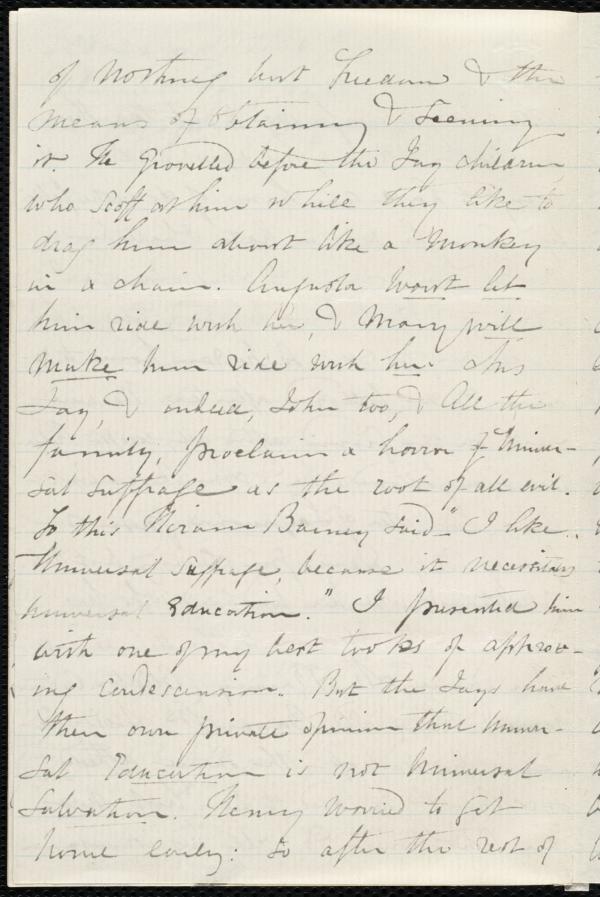 of nothing but freedom & the
means of obtaining & securing
it. He grovelled before the Jay children,
who scoff at him while they like to
drag him about like a monkey
in a chain. Augusta won't let
him ride with her, & Mary will
make him ride with her. Mrs
Jay, & indeed, John too, & all the
family, proclaim a horror of Univer-
sal Suffrage as the root of all evil.
To this Hiram Barney said - "I like
Universal Suffrage, because it necessitates
universal Education." I presented him
with one of my best looks of approv-
ing condescension. But the Jays have
their own private opinion that Univer-
sal Education is not Universal
Salvation. Henry worried to get
home early: so after the rest of